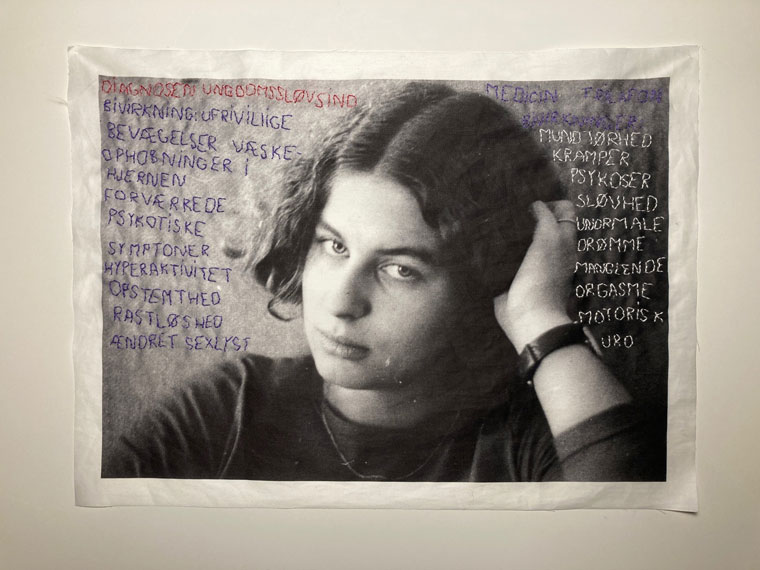 DIAGNOSEN UNGDOMSSLØVSIND
BIVIRKNING: UFRIVILIIGE
BEVÆGELSER VÆSKE-
OPHOBNINGER I
HJERNEN
FORVÆRREDE
PSYKOTISKE
SYMPTONER
HYPERAKTIVITET
OPSTEMTHED
RASTLØSHED
ÆNDRET SEXLYST
MEDICIN
MUNDTØRHED
KRAMPER
PSYKOSER
SLØVHED
UNORMALE
DRØMME
MANGLENDE
ORGASME
MOTORISK
URO